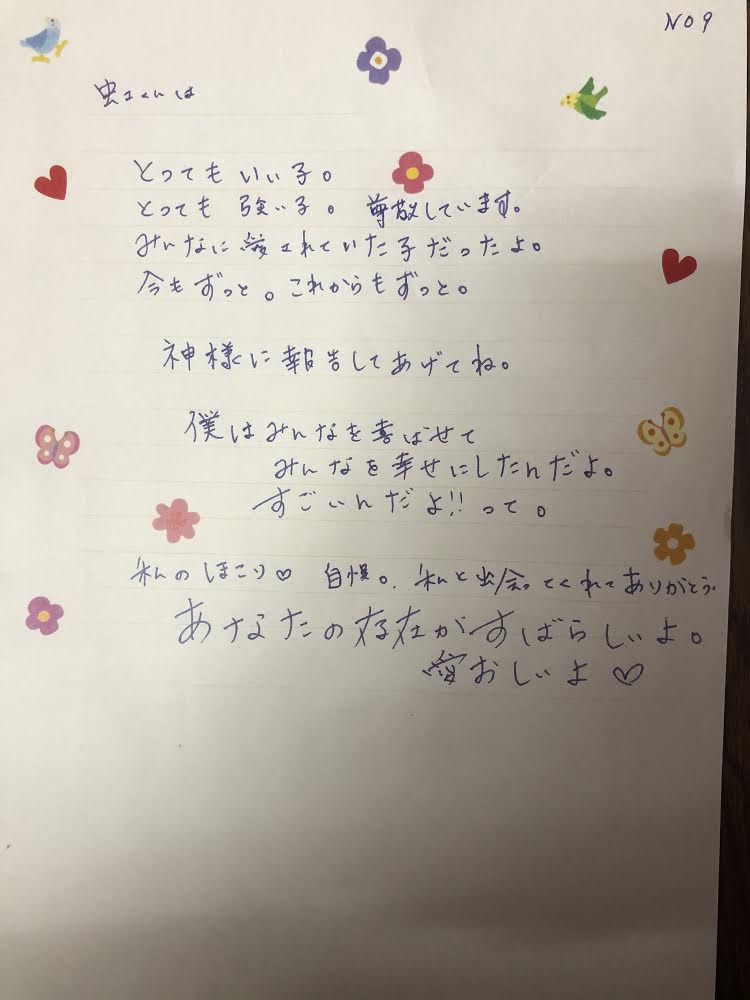 NO 9
虹くんは
とってもいい子。
とっても強い子。 尊敬しています。
みんなに愛されていた子だったよ。
今もずっと。これからもずっと。
神様に報告してあげてね。
僕はみんなを喜ばせて
みんなを幸せにしたんだよ。
すごいんだよ!!って。
私のほこり♡ 自慢。私と出会ってくれてありがとう。
あなたの存在がすばらしいよ。
愛おしいよ♡